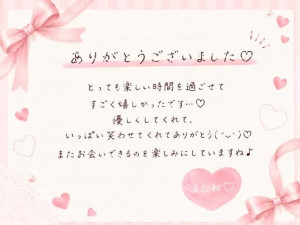 ありがとうございました♡
とっても楽しい時間を過ごせて
すごく嬉しかったです…♡
優しくしてくれて、
いっぱい笑わせてくれてありがとう(ˊᵕˋ)♡
またお会いできるのを楽しみにしていますね♪
またね♡